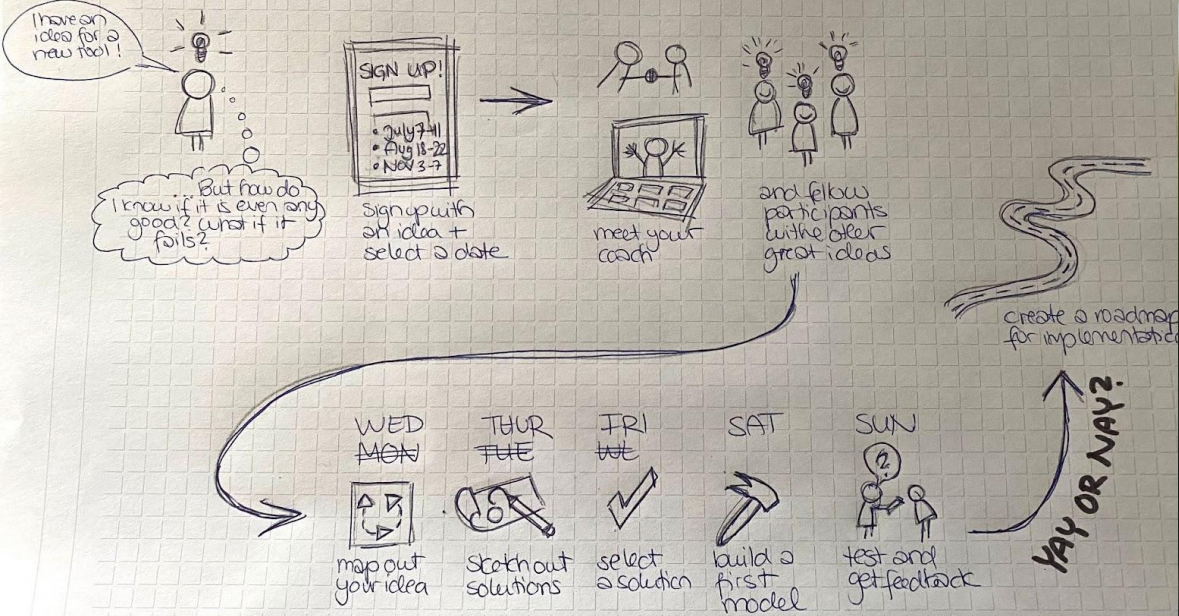 I have an
idea for a
new tool!
... But how do
I know if it is even any
good? What if it
fails?
SIGN UP!
• July 7-11
• Aug 18-22
• Nov 3-7
sign up with
an idea +
select a date
meet your
coach
and fellow
participants
with other
great ideas
create a roadmap
for implementatio
WED
MON
THUR
TUE
FRI
WE
SAT
SUN
?
map out
your idea
sketch out
solutions
select
a solution
build a
first
model
test and
get feedback
YAY OR NAY?